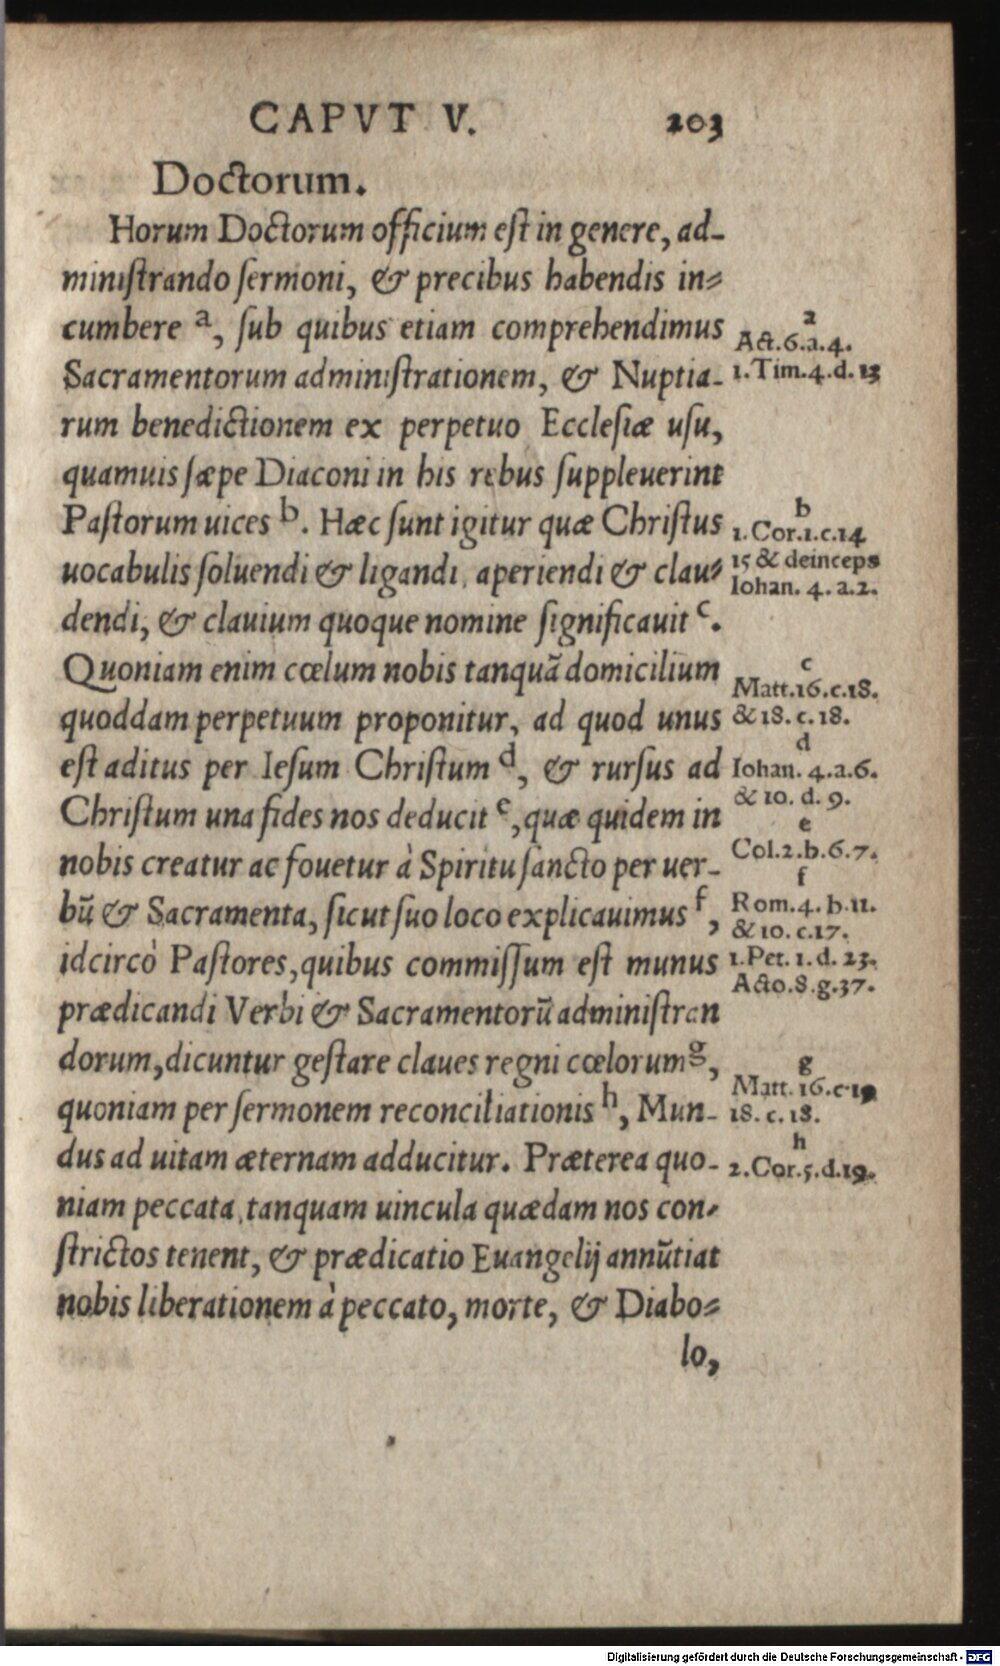 CAPVT V. 203
Doctorum.
Horum Doctorum officium eſt in genere, ad-
miniſtrando ſermoni, & precibus habendis in-
cumbere a, ſub quibus etiam comprehendimus
Sacramentorum adminiſtrationem, & Nuptia-
rum benedictionem ex perpetuo Eccleſiæ uſu,
quamuis ſæpe Diaconi in his rebus ſuppleuerint
Paſtorum uices b. Hæc ſunt igitur quæ Chriſtus
uocabulis ſoluendi & ligandi, aperiendi & clau-
dendi, & clauium quoque nomine ſignificauit c.
Quoniam enim cœlum nobis tanquã domicilium
quoddam perpetuum proponitur, ad quod unus
eſt aditus per Ieſum Chriſtum d, & rurſus ad
Chriſtum una fides nos deducit e, quæ quidem in
nobis creatur ac fouetur à Spiritu ſancto per uer-
bũ & Sacramenta, ſicut ſuo loco explicauimus f,
idcircò Paſtores, quibus commiſſum eſt munus
prædicandi Verbi & Sacramentorũ adminiſtran
dorum, dicuntur geſtare claues regni cœlorum g,
quoniam per ſermonem reconciliationis h, Mun-
dus ad uitam æternam adducitur. Præterea quo-
niam peccata, tanquam uincula quædam nos con-
ſtrictos tenent, & prædicatio Euangelij annũtiat
nobis liberationem à peccato, morte, & Diabo-
lo,
a
Act.6.a.4.
1.Tim.4.d.13
b
1.Cor.1.c.14
15 & deinceps
Iohan. 4. a.2.
c
Matt.16.c.18.
& 18. c. 18.
d
Iohan. 4.a.6.
& 10. d. 9.
e
Col.2.b.6.7.
f
Rom.4.b.11.
& 10. c.17.
1.Pet. 1. d. 23.
Acto.8.g.37.
g
Matt.16.c.19
18. c. 18.
h
2.Cor.5.d.19.
Digitalisierung gefördert durch die Deutsche Forschungsgemeinschaft - DFG